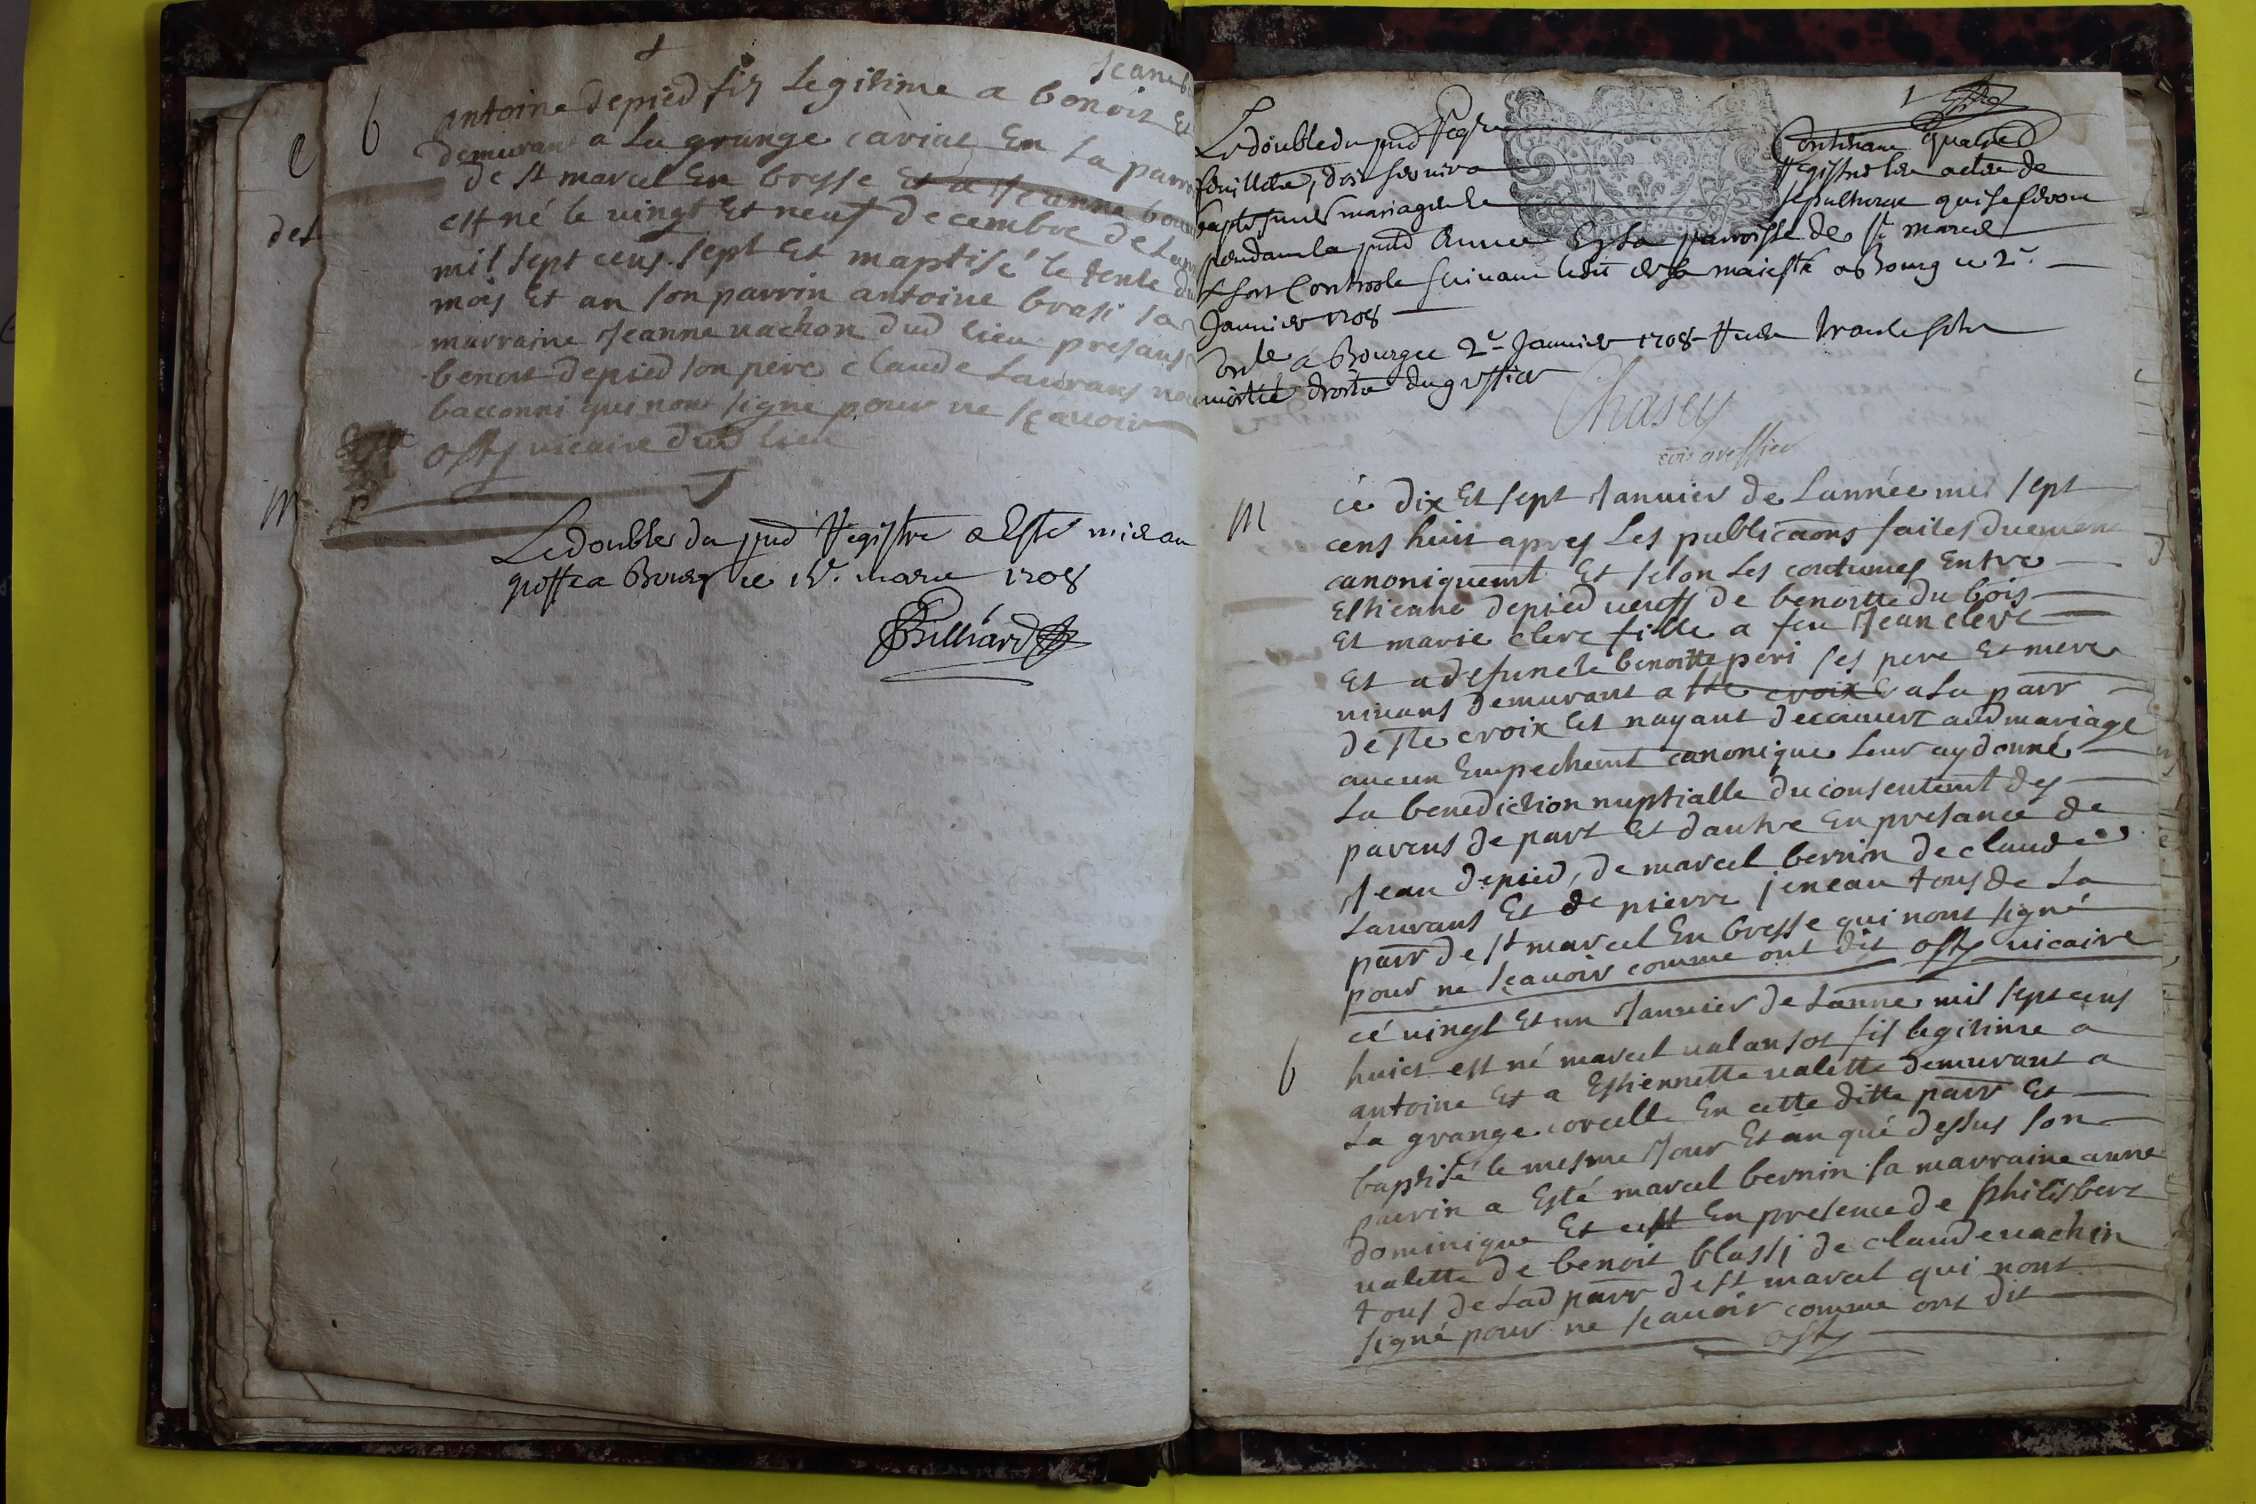 b
antoine depied fiz Legitime a benoit Et
demurant a La grange cariat En La parr
de st marcel En bresse Et a Jeanne
est né le vingt Et neuf decembre de
mil sept cens sept Et maptisé le tente du
mois Et an son parrin antoine brasi sa
marraine Jeanne vachon dud lieu presans
benoit depied son pere claude Laurans
bacconni qui nont signe pour ne sçavoir
osty vicaire dud lieu
Le double du pnd Registre a Esté mis au
greffe a Bourg ce mars 1708
Billiard
1
Le double du pnd Regre Contenant quatre
feuillets, doit servir a Registrer les actes de
bapte, mariages sepultures qui se feront
pendant la pnte Annee En La parroisse de St marcel
Controole suivant Ledit de sa maiesté a Bourg ce 2e
Janvier 1708
a Bourg ce 2e Janvier 1708
moitié droits du greffier
Chasey
greffier
M
ce dix Et sept Janvier de L'année mil sept
cens huit apres Les publicaons faites duement
canoniquemt Et selon Les coutumes Entre
Estienne depied veuf de benoitte du bois
Et marie clerc fille a feu Jean clerc
Et a defuncte benoitte peri ses pere Et mere
vivans demurant a ste croix a La parr
de ste croix Et nayant decouvert aud mariage
aucun Empechemt canonique Leur ay donné
La benediction nuptialle du consentemt des
parens de part Et dautre En presance de
Jean depied, de marcel bernin de claude
Laurans Et de pierre jeneau tous de La
parr de st marcel En bresse qui nont signé
pour ne sçavoir comme ont dit osty vicaire
b
cé vingt Et un Janvier de Lanne mil sept cens
huict est né marcel valansot fis legitime a
antoine Et a Estiennette valette demurant a
La grange corcelle En cette ditte parr Et
baptisé le mesme Jour Et an qué dessus son
parrin a Esté marcel bernin sa marraine anne
dominique Et cest En presence de philisbert
valette de benoit blassi de claude vachin
tous de Lad parr de st marcel qui nont
signé pour ne scavoir comme ont dit
osty